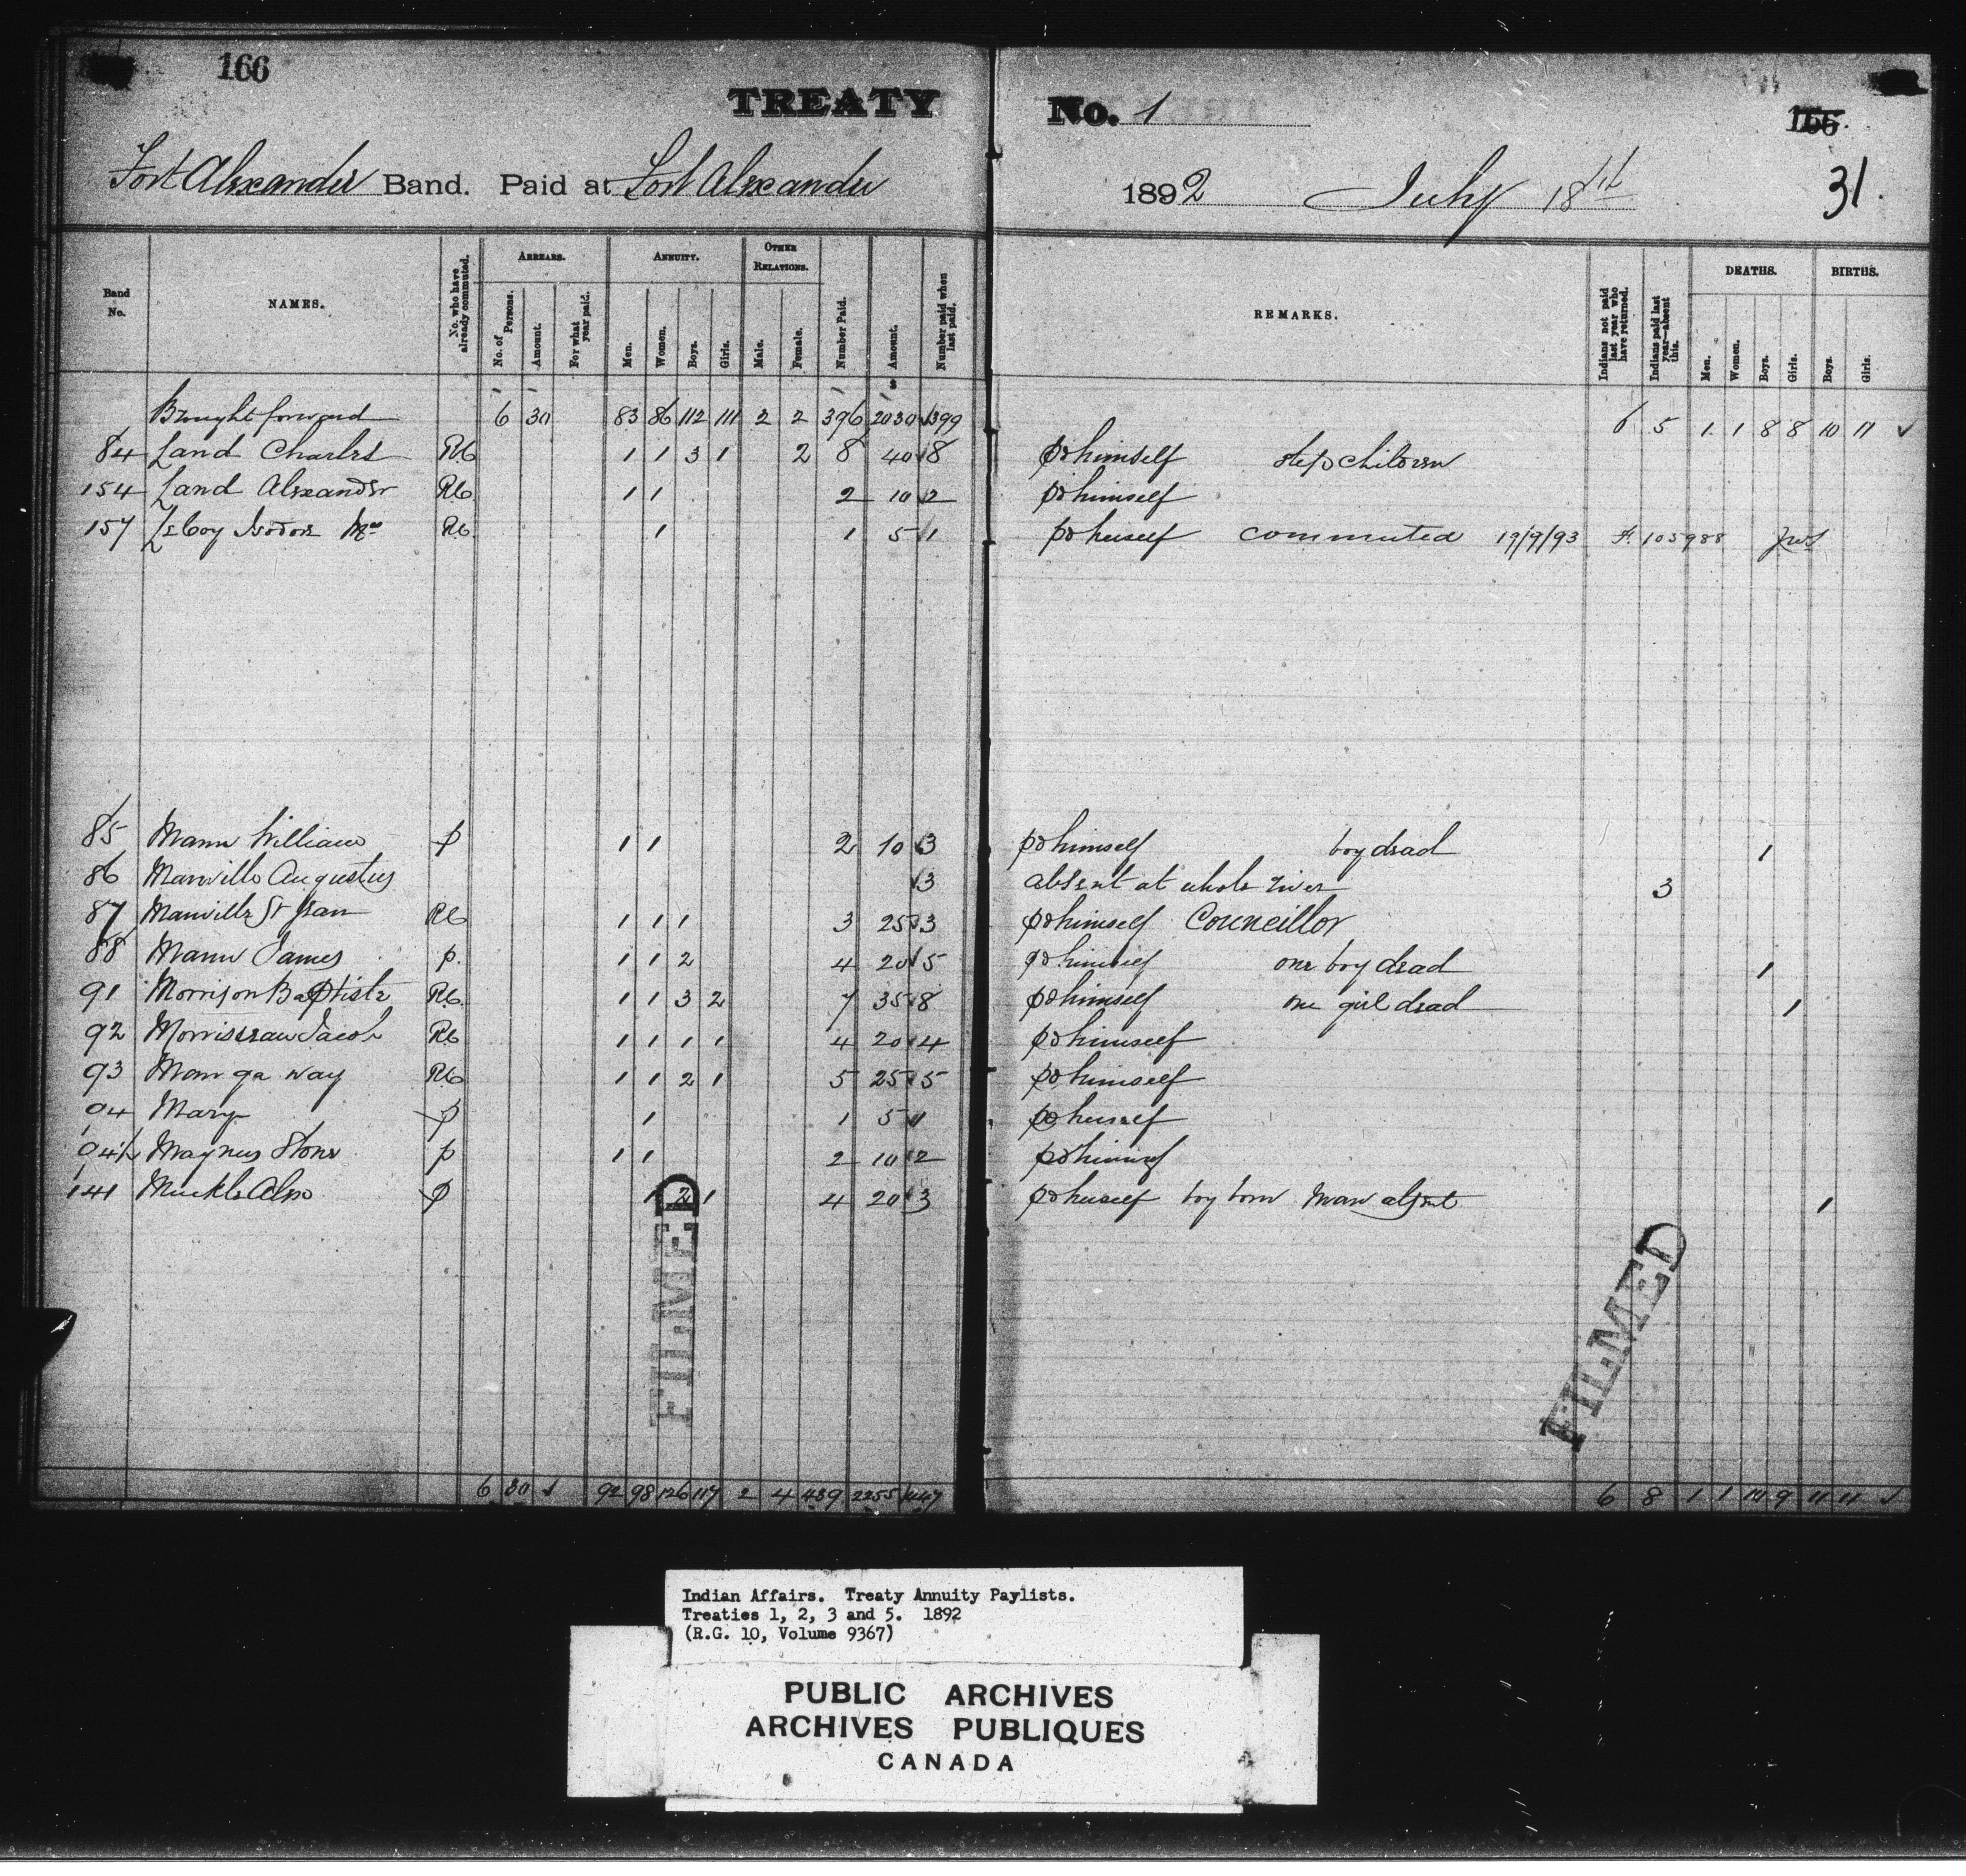 166
TREATY No. 1
166
Fort Alexander Band. Paid at Fort Alexander 1892 July 18th
31.
Band No. NAMES. No. who have already commuted. ARREARS. No. of Persons. Amount. For what year paid. ANNUITY. Men. Women. Boys. Girls. OTHER RELATIONS. Male. Female. Number Paid. Amount. Number paid when last paid. REMARKS. Indians not paid last year who have returned. Indians paid last year—absent this. DEATHS. Men. Women. Boys. Girls. BIRTHS. Boys. Girls.
Brought forward 6 30 83 86 112 111 2 2 396 2030 399 6 5 1 1 8 8 10 11 ✓
84 Land Charles RC 1 1 3 1 2 8 40 8 pd himself step children
154 Land Alexander RC 1 1 2 10 2 pd himself
157 Isodore Mrs RC 1 1 5 1 pd herself commuted 19/9/93 105988
85 Mann William p 1 1 2 10 3 pd himself boy dead 1
86 Manville Augustus 3 absent at whole river 3
87 Manville St Jean RC 1 1 1 3 25 3 pd himself Councillor
88 Mann James p. 1 1 2 4 20 5 pd himself one boy dead 1
91 Morrison Baptiste RC. 1 1 3 2 7 35 8 pd himself one girl dead 1
92 Morrisseau Jacob RC 1 1 1 1 4 20 4 pd himself
93 Mon ga way RC 1 1 2 1 5 25 5 pd himself
94 Mary p 1 1 5 1 pd herself
94½ Magnus Stone p 1 1 2 10 2 pd himself
141 Muckle Alex p 1 2 1 4 20 3 pd herself boy born Man absent 1
FILMED
FILMED
6 30 ✓ 92 98 126 117 2 4 439 2255 447 6 8 1 1 10 9 11 11 ✓
Indian Affairs. Treaty Annuity Paylists.
Treaties 1, 2, 3 and 5. 1892
(R.G. 10, Volume 9367)
PUBLIC ARCHIVES
ARCHIVES PUBLIQUES
CANADA